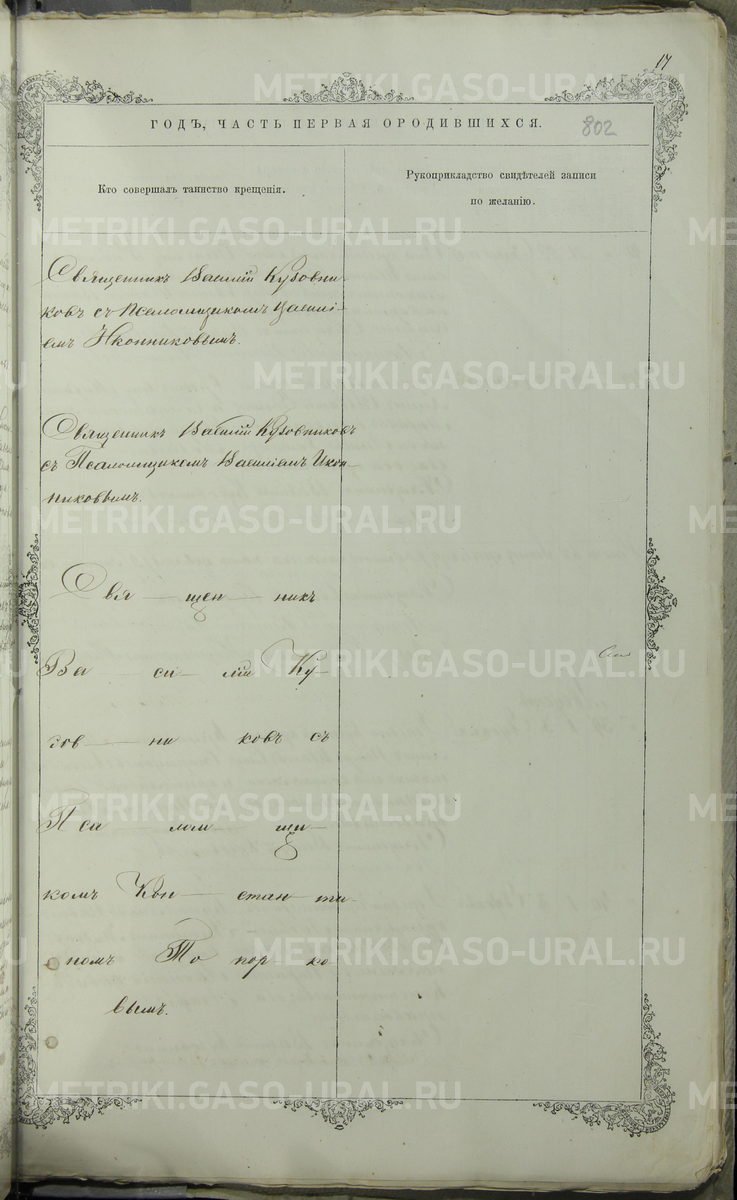 17
METRIKI.GASO-URAL.RU
ГОДЪ, ЧАСТЬ ПЕРВАЯ О РОДИВШИХСЯ.
802
Кто совершалъ таинство крещенія.
Рукоприкладство свидѣтелей записи
по желанію.
Священникъ Василій Кузовни-
ковъ съ Псаломщикомъ Василі-
емъ Иконниковымъ.
Священникъ Василій Кузовниковъ
съ Псаломщикомъ Василіемъ Икон-
никовымъ.
Свя — щен — никъ
Ва — си — лій Ку-
зов — ни — ковъ съ
Пса — лом — щи-
комъ Кон — стан — ти-
номъ То — пор — ко
вымъ.